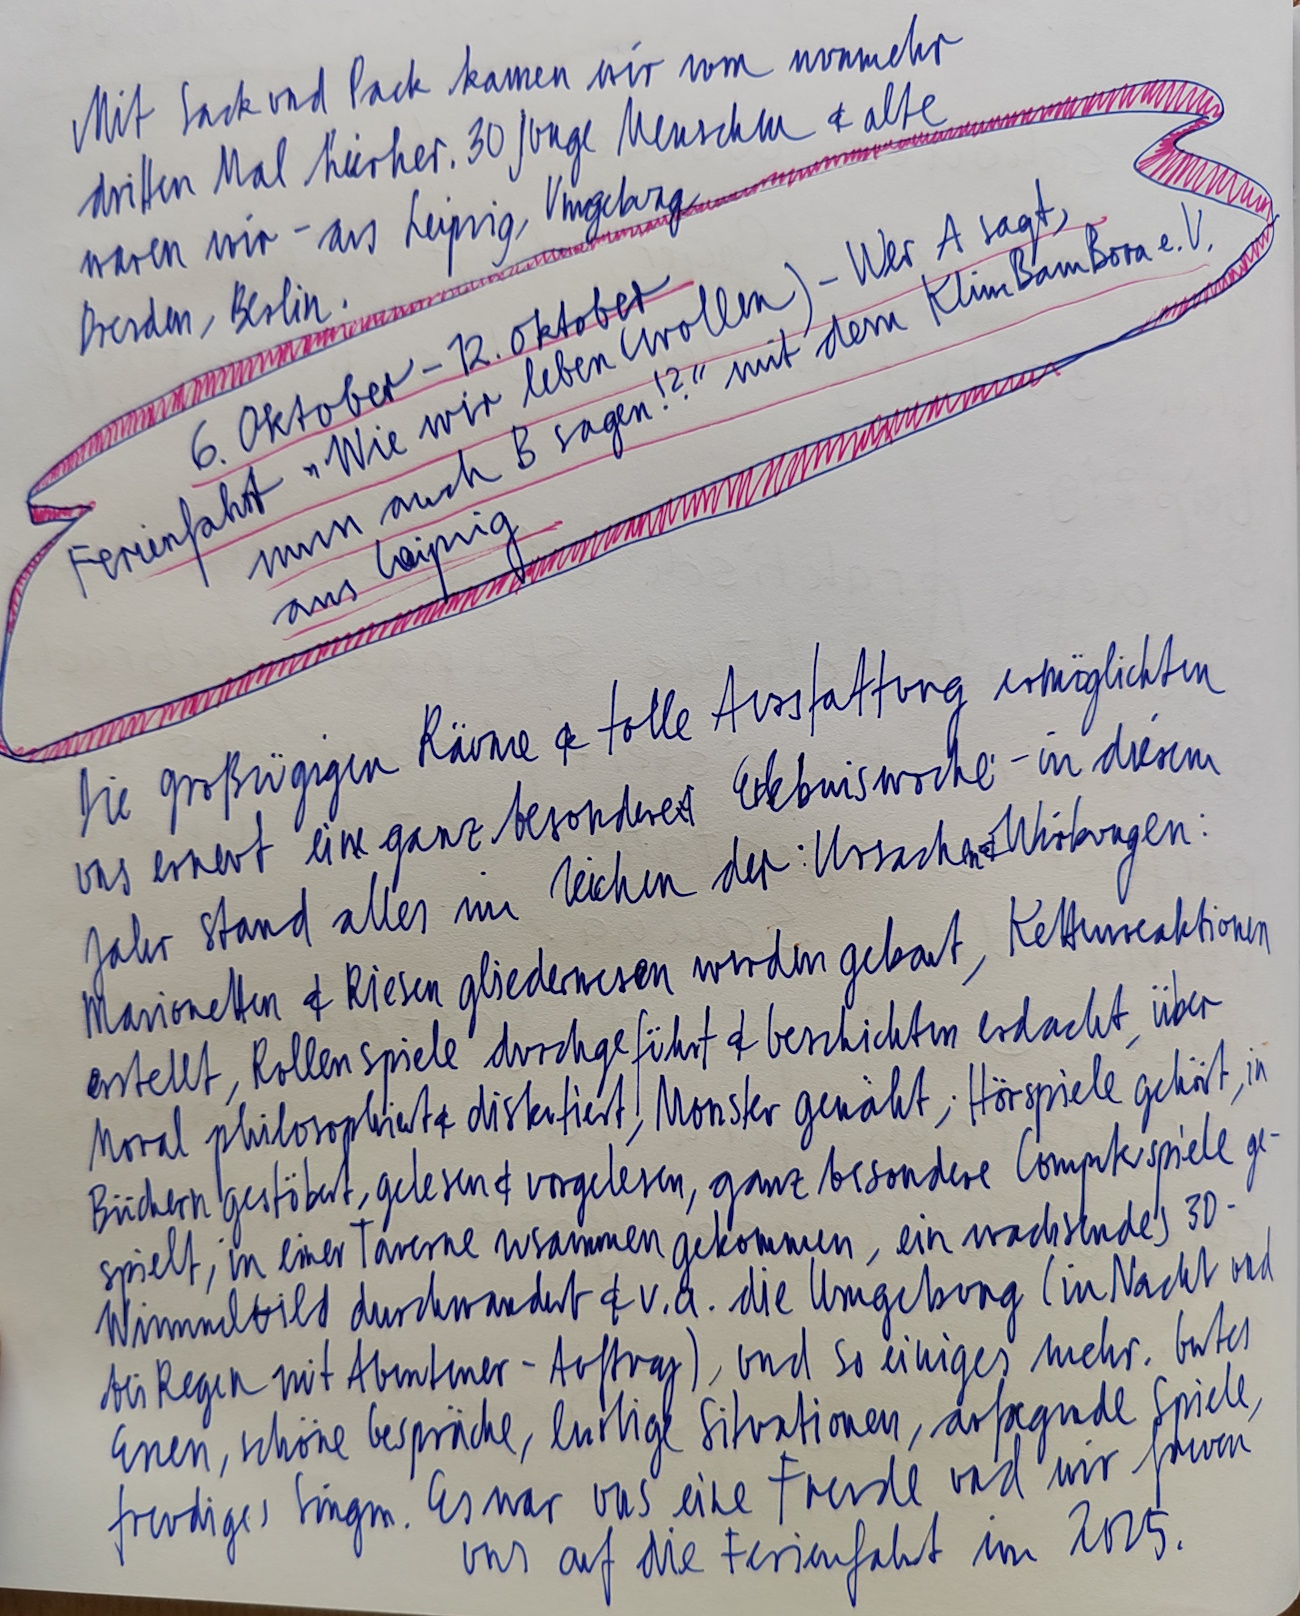 Mit Sack und Pack kamen wir vom nunmehr
dritten Mal hierher. 30 junge Menschen & alte
waren wir – aus Leipzig, Umgebung,
Dresden, Berlin.
6. Oktober – 12. Oktober
Ferienfahrt "Wie wir leben (wollen) – Wer A sagt,
muss auch B sagen!?" mit dem KlimBamBora e.V.
aus Leipzig
Die großzügigen Räume & tolle Ausstattung ermöglichten
uns erneut eine ganz besondere Erlebniswoche – in diesem
Jahr stand alles im Zeichen der: Ursachen & Wirkungen:
Marionetten & Riesengliederwesen wurden gebaut, Kettenreaktionen
erstellt, Rollenspiele durchgeführt & Geschichten erdacht, über
Moral philosophiert & diskutiert, Monster genäht, Hörspiele gehört, in
Büchern gestöbert, gelesen & vorgelesen, ganz besondere Computerspiele ge-
spielt, in einer Taverne zusammengekommen, ein wachsendes 3D-
Wimmelbild durchwandert & v.a. die Umgebung (in Nacht und
bei Regen mit Abenteuer-Auftrag), und so einiges mehr. Gutes
Essen, schöne Gespräche, lustige Situationen, aufregende Spiele,
freudiges Singen. Es war uns eine Freude und wir freuen
uns auf die Ferienfahrt in 2025.